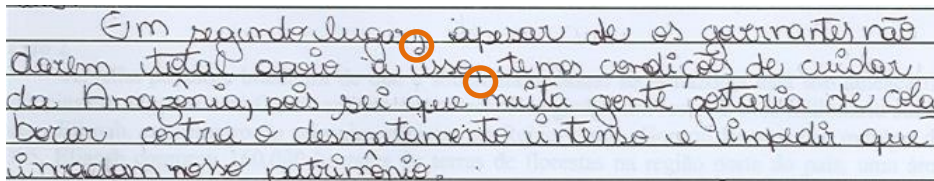 Em segundo lugar, apesar de os governantes não
darem total apoio à isso, temos condições de cuidar
da Amazônia, pois sei que muita gente gostaria de cola
borar contra o desmatamento intenso e impedir que
invadam nosso patrimônio.